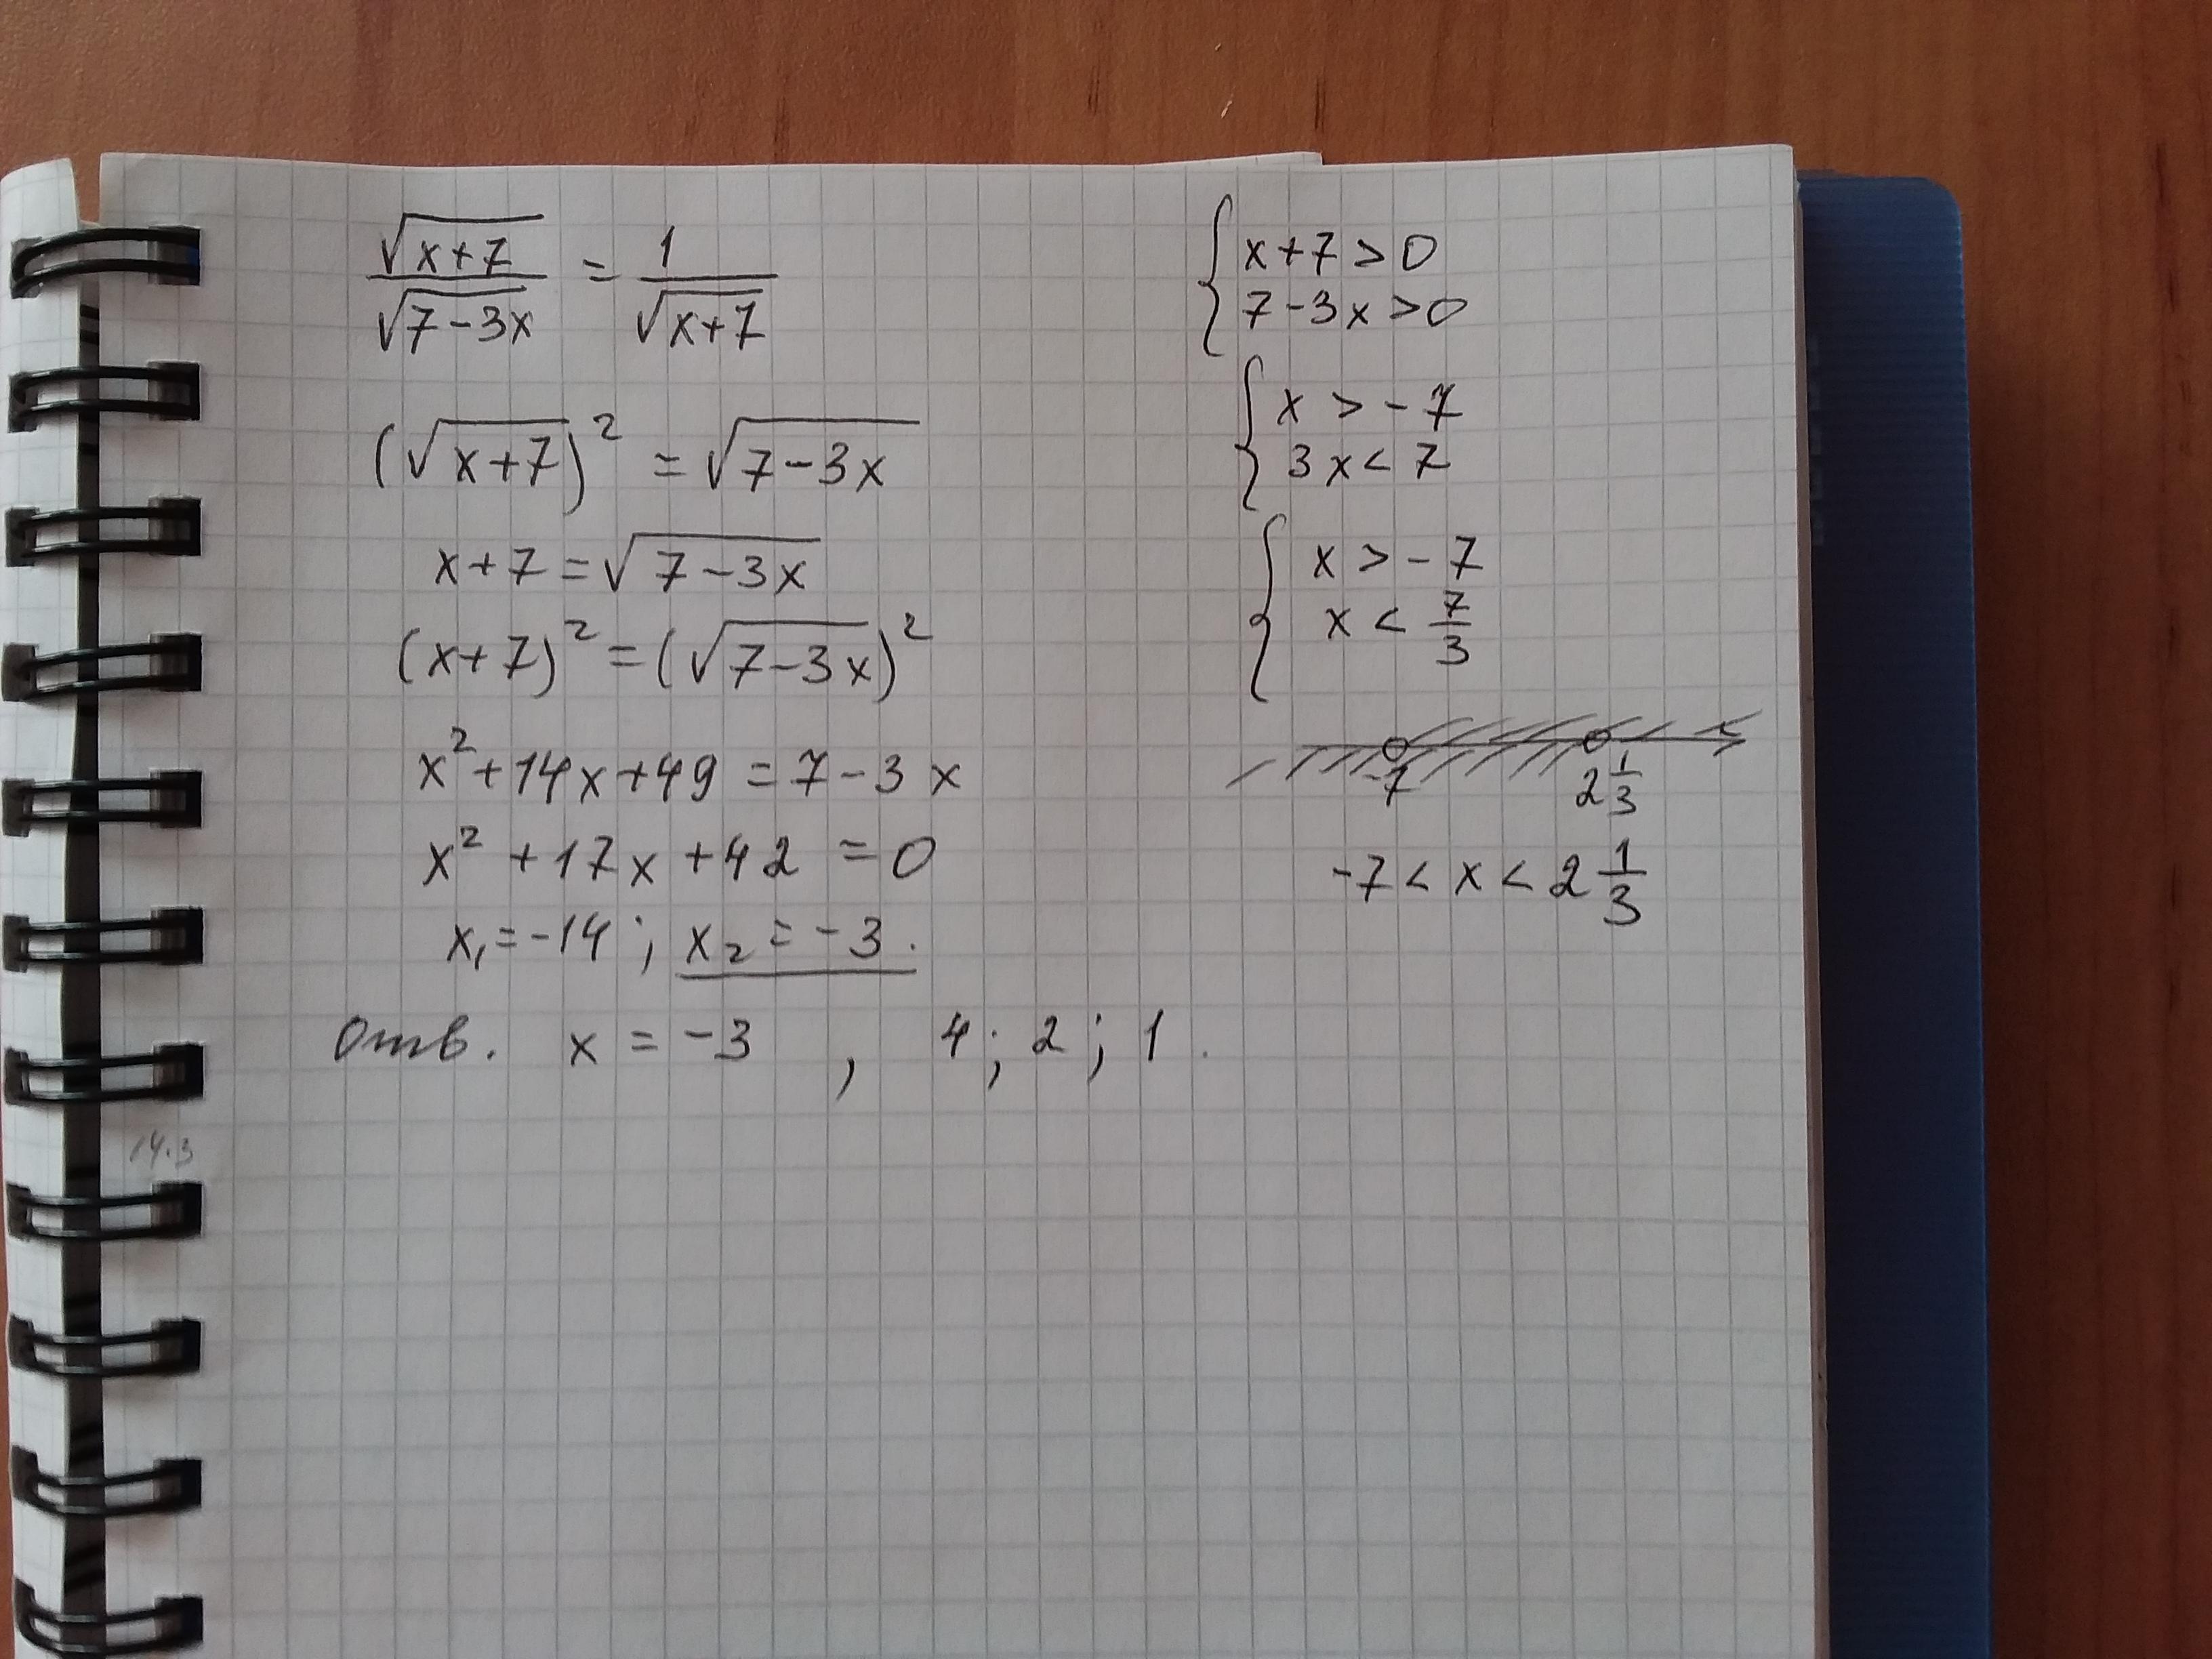 √(x+7) / √(7-3x) = 1 / √(x+7)
(√(x+7))² = √(7-3x)
x+7 = √(7-3x)
(x+7)² = (√(7-3x))²
x²+14x+49 = 7-3x
x²+17x+42 = 0
x₁=-14; x₂=-3.
Отв. x = -3 , 4; 2; 1.
14.3
{ x+7 > 0
7-3x > 0
{ x > -7
3x < 7
{ x > -7
x < 7/3
-7 2 1/3
-7 < x < 2 1/3